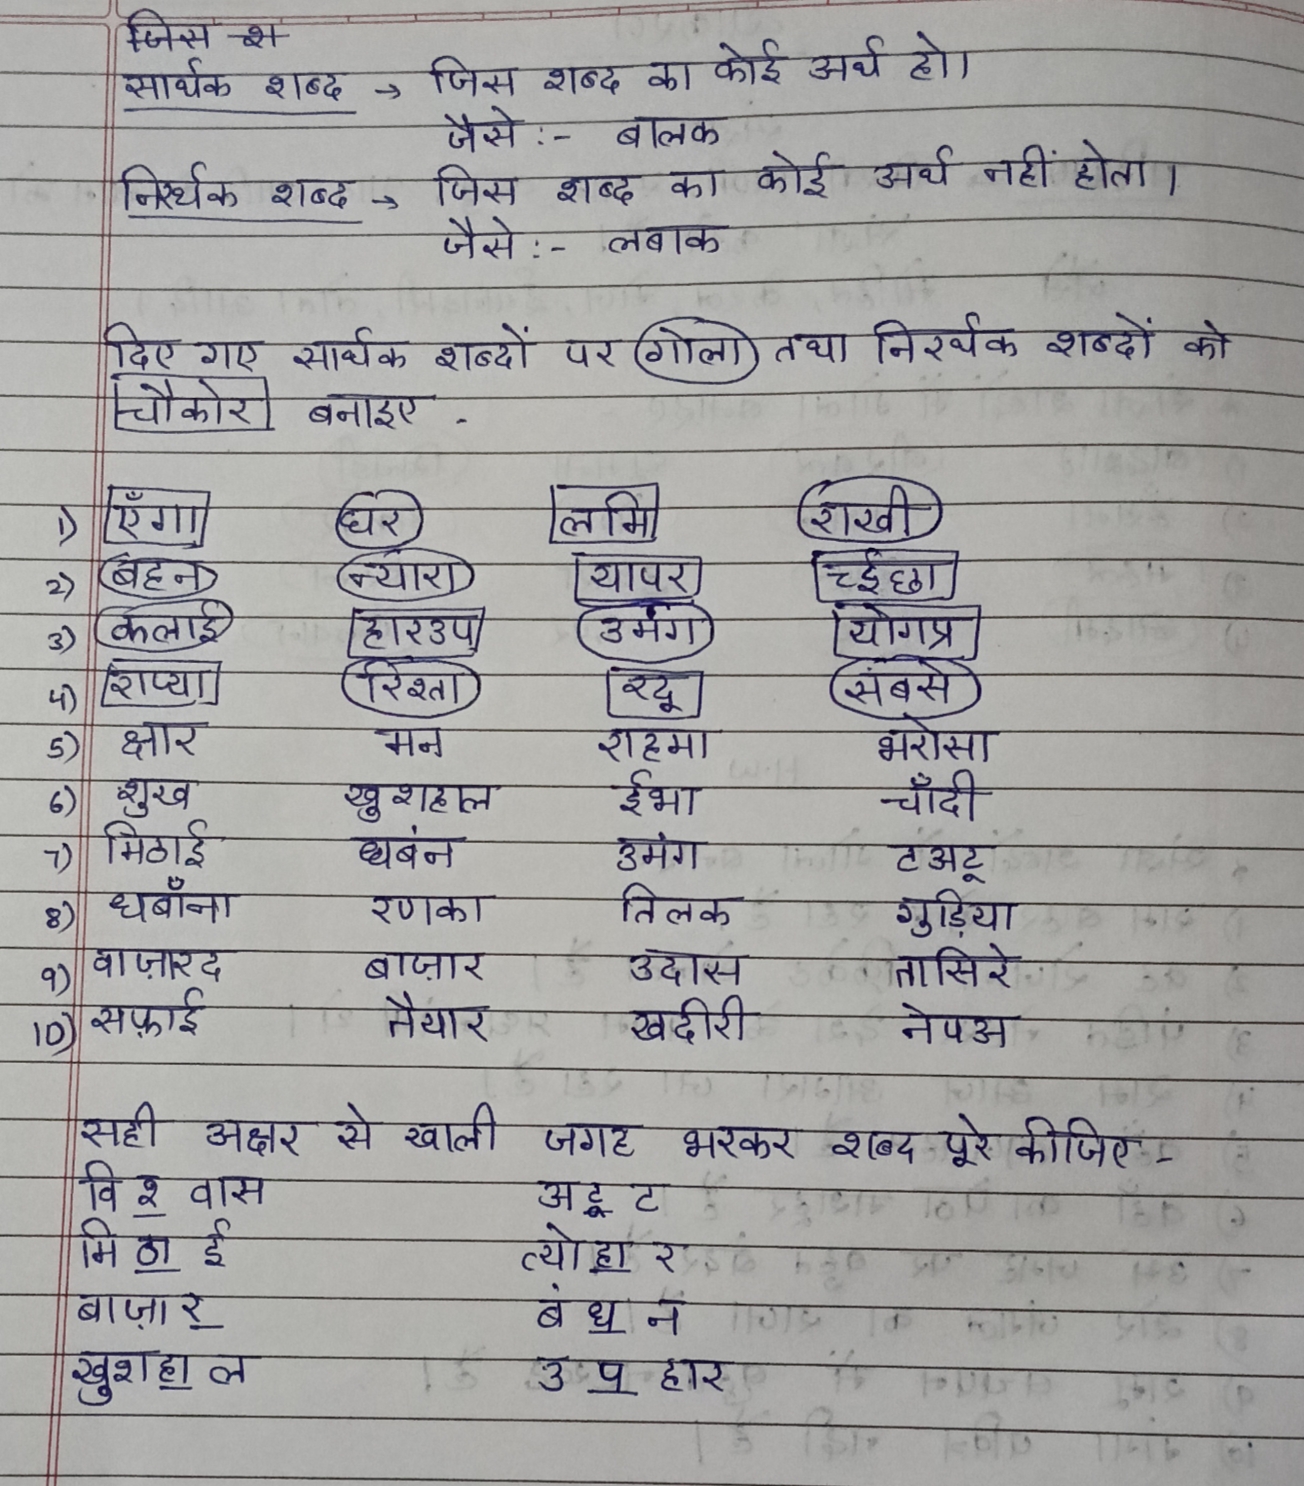 जिस श
सार्थक शब्द → जिस शब्द का कोई अर्थ हो।
जैसे :- बालक
निर्थक शब्द → जिस शब्द का कोई अर्थ नहीं होता।
जैसे :- लबाक
दिए गए सार्थक शब्दों पर गोला तथा निरर्थक शब्दों को
चौकोर बनाइए -
1) एँगा घर लमि राखी
2) बहन न्यारा यापर च्ईछा
3) कलाई हारउप उमंग योगप्र
4) राप्या रिश्ता रदू सबसे
5) क्षार मन राहमा भरोसा
6) शुख खुशहाल ईभा चाँदी
7) मिठाई धबंन उमंग टअटू
8) धबाँना रणका तिलक गुड़िया
9) वाज़ारद बाज़ार उदास तासिरे
10) सफ़ाई तैयार खदीरी नेपअ
सही अक्षर से खाली जगह भरकर शब्द पूरे कीजिए -
वि श् वास अटू ट
मि ठा ई त्यो हा र
बाज़ा र बं ध न
खुश हा ल उ प हार